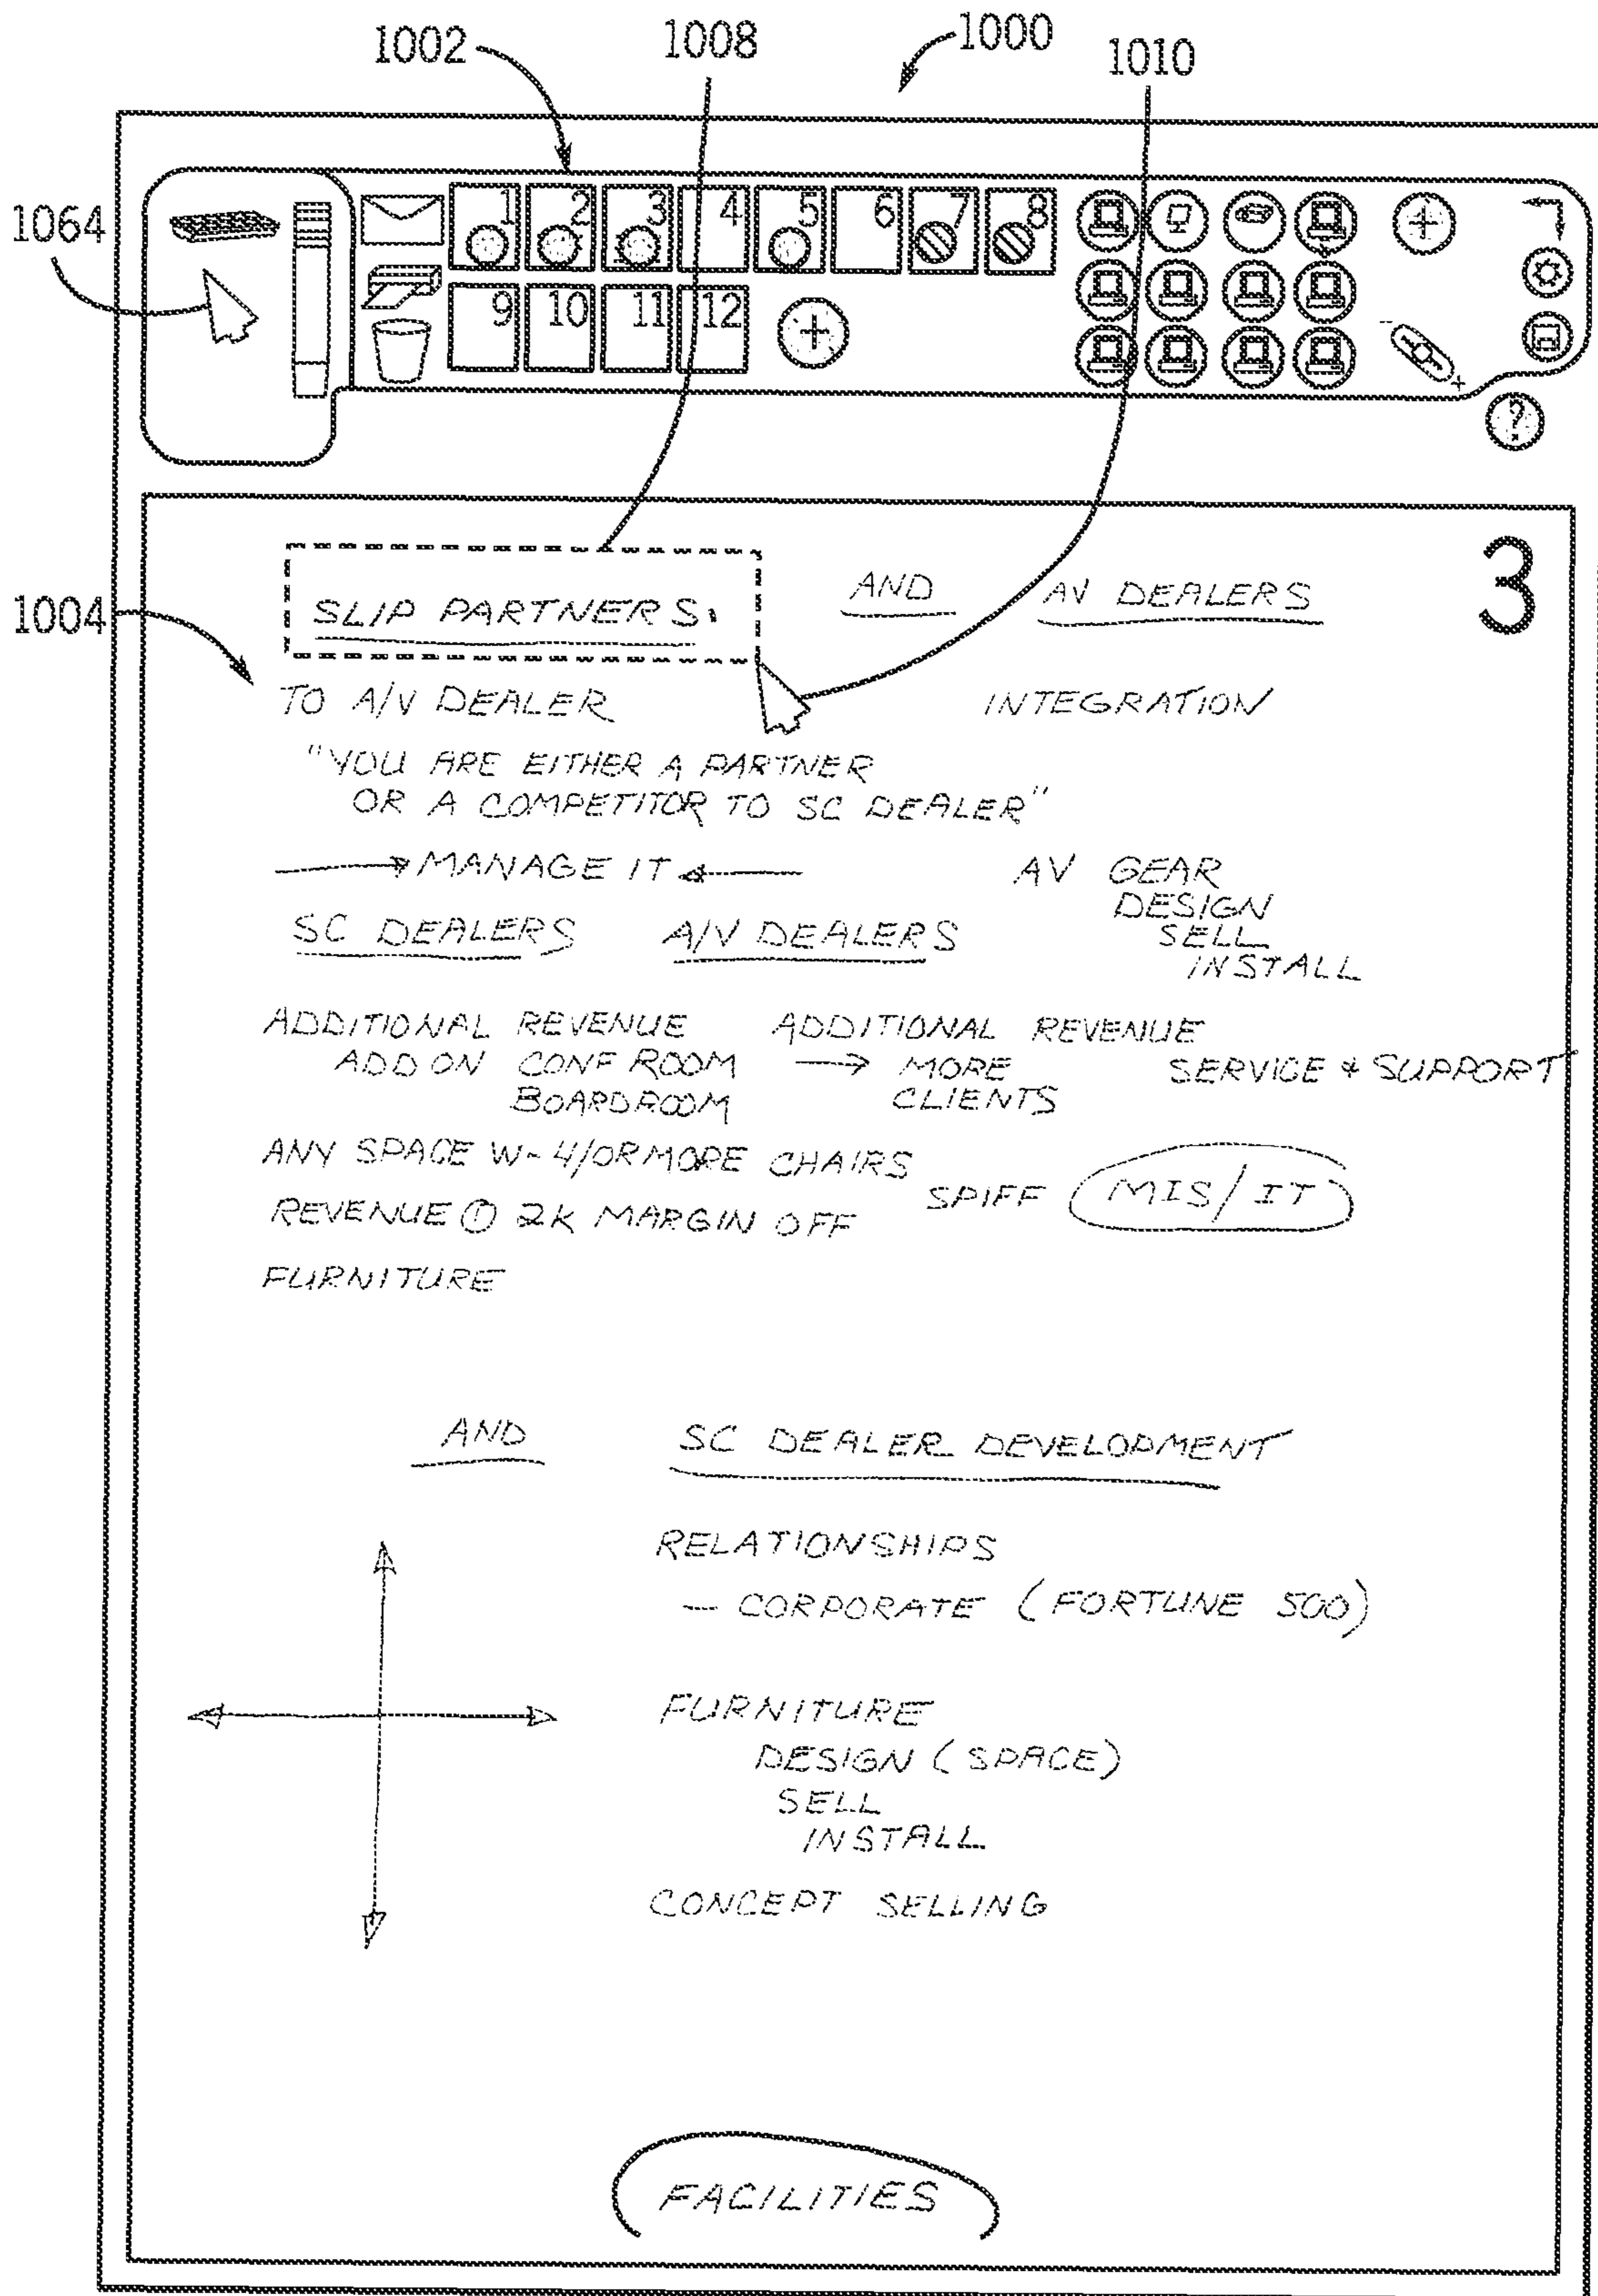 1002 1008 1000 1010
1064
1 2 3 4 5 6 7 8
9 10 11 12
?
3
1004
SLIP PARTNERS. AND AV DEALERS
TO A/V DEALER INTEGRATION
"YOU ARE EITHER A PARTNER
OR A COMPETITOR TO SC DEALER"
MANAGE IT AV GEAR
DESIGN
SC DEALERS A/V DEALERS SELL
INSTALL
ADDITIONAL REVENUE ADDITIONAL REVENUE
ADD ON CONF ROOM → MORE SERVICE & SUPPORT
BOARDROOM CLIENTS
ANY SPACE W- 4/OR MORE CHAIRS
SPIFF MIS/IT
REVENUE 2K MARGIN OFF
FURNITURE
AND SC DEALER DEVELOPMENT
RELATIONSHIPS
— CORPORATE (FORTUNE 500)
FURNITURE
DESIGN (SPACE)
SELL
INSTALL
CONCEPT SELLING
FACILITIES